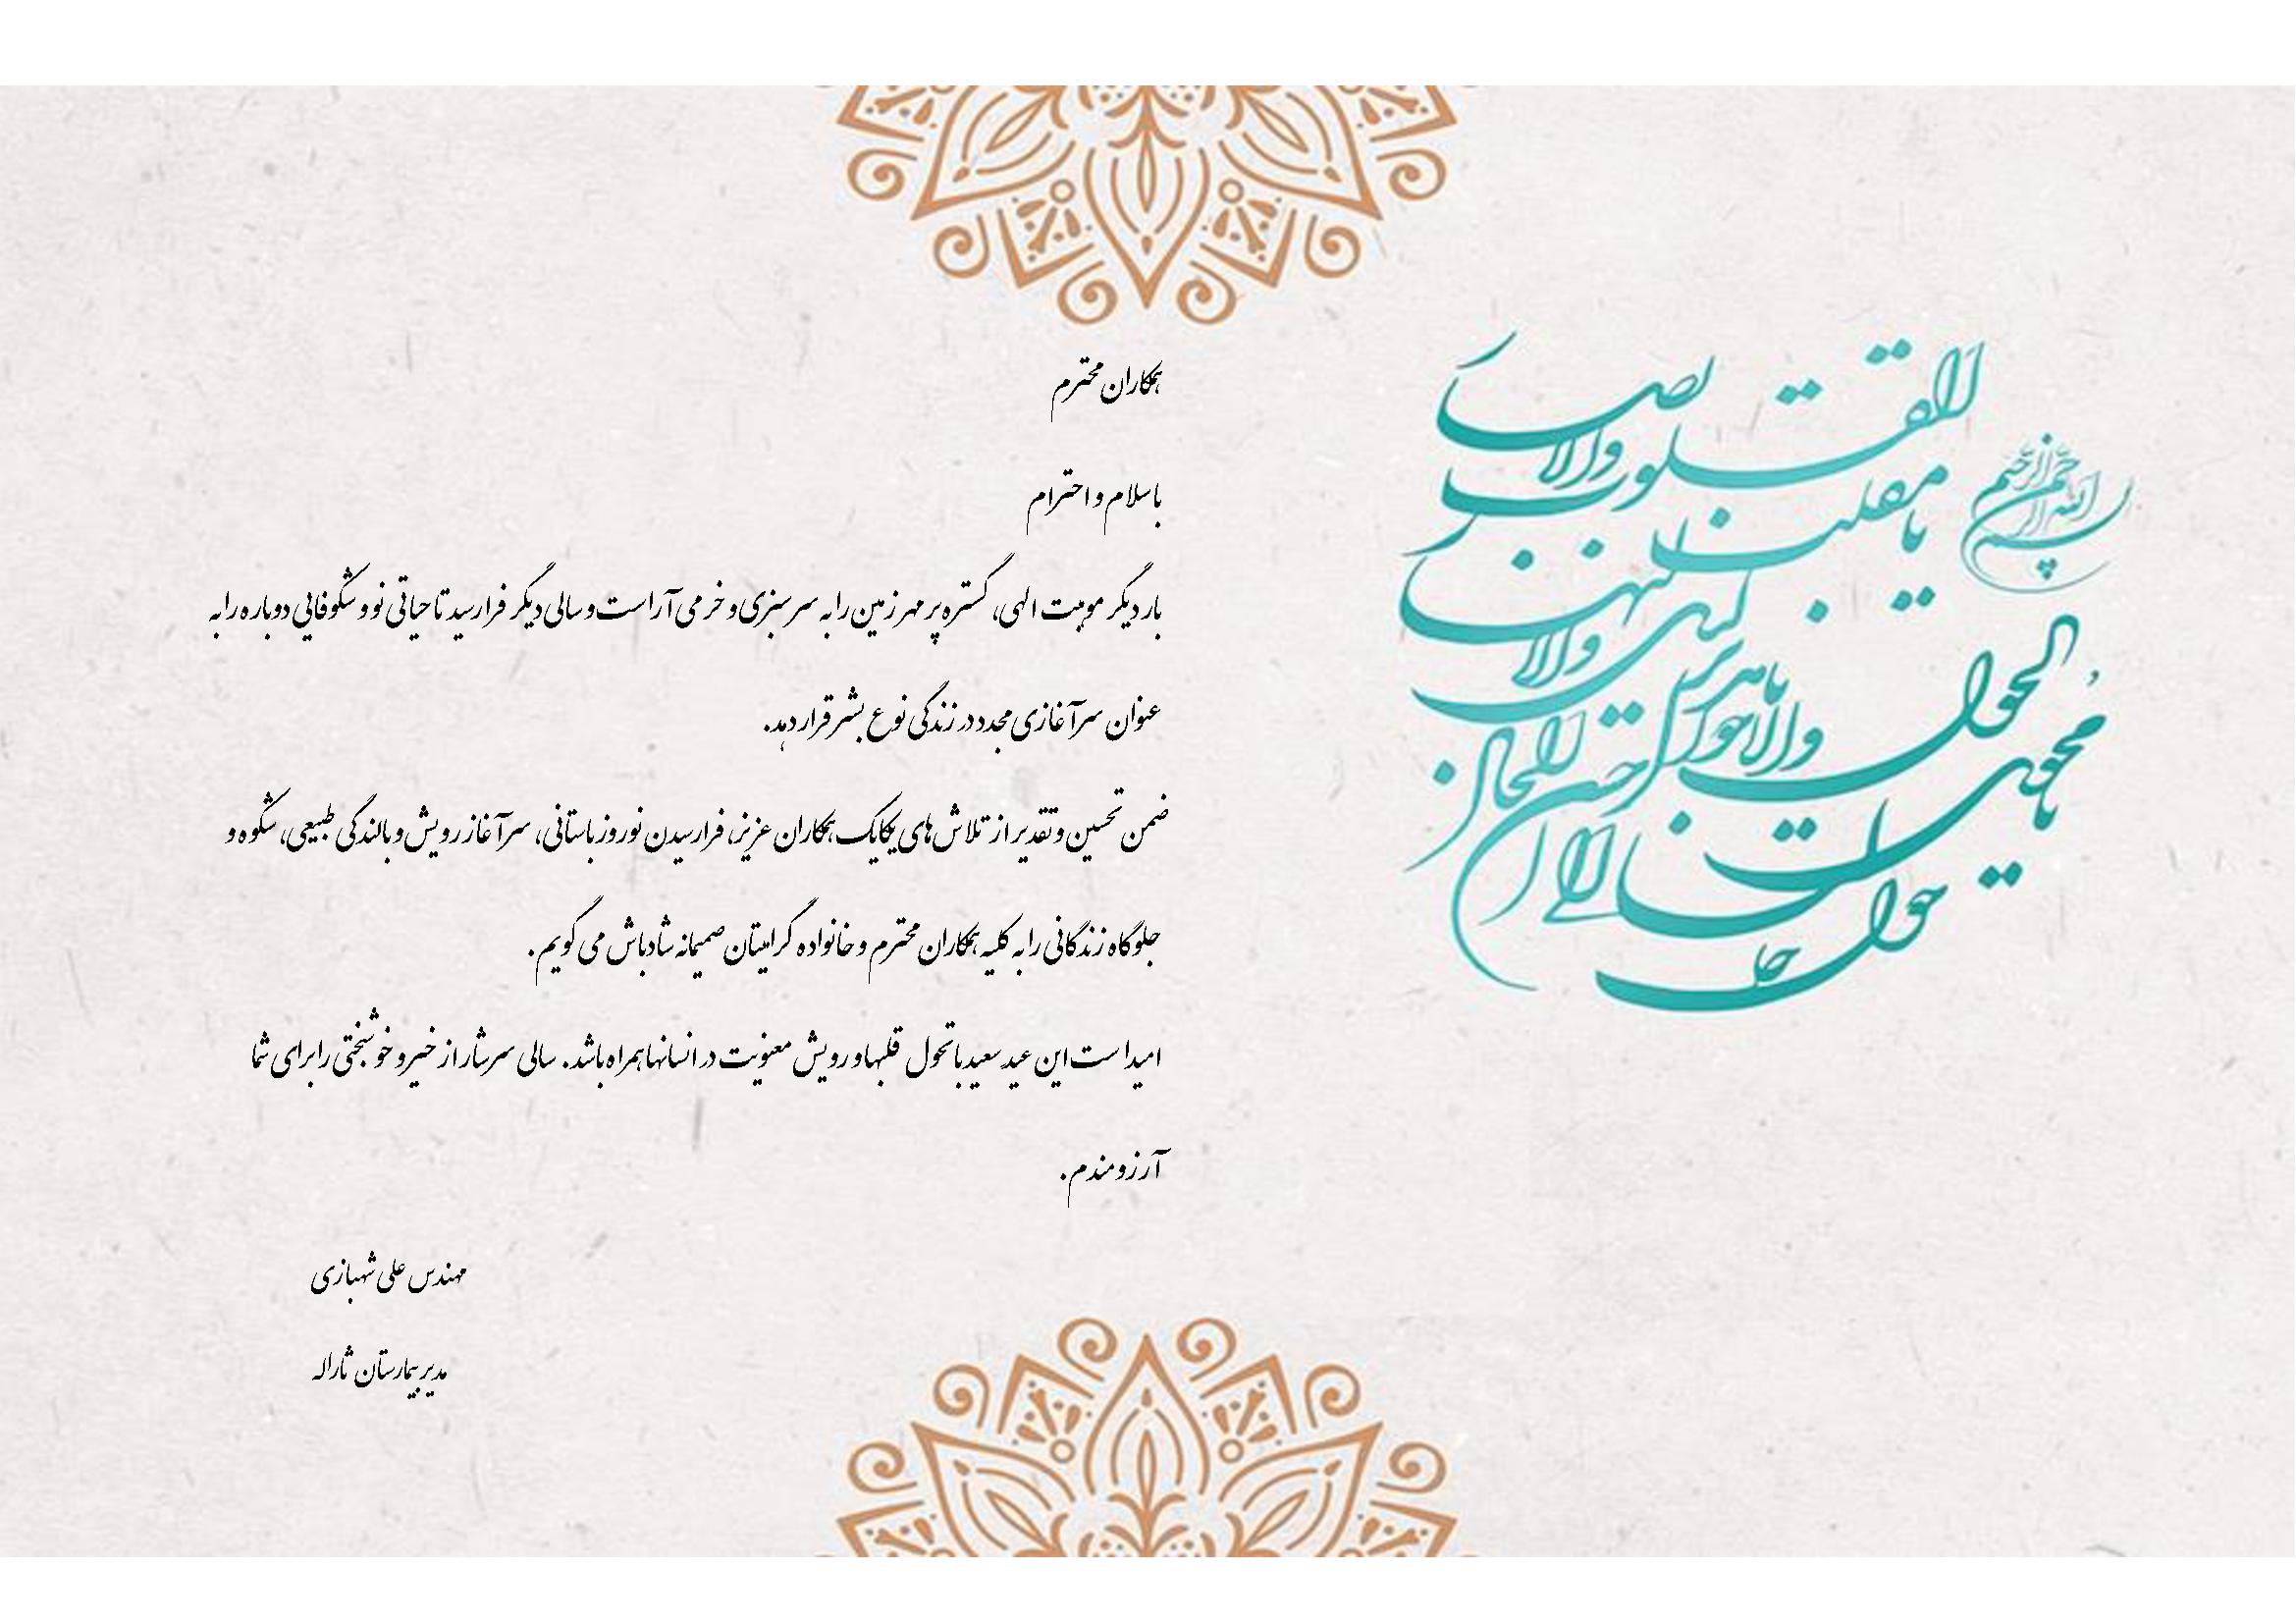 بسم الله الرحمن الرحیم
یا مقلب القلوب والابصار
یا مدبر اللیل والنهار
یا محول الحول والاحوال
حول حالنا الی احسن الحال
همکاران محترم
با سلام و احترام
بار دیگر موهبت الهی، گستره پر مهر زمین را به سرسبزی و خرمی آراست و سالی دیگر فرا رسید تا حیاتی نو و شکوفایی دوباره را به
عنوان سرآغازی مجدد در زندگی نوع بشر قرار دهد.
ضمن تحسین و تقدیر از تلاش های یکایک همکاران عزیز، فرا رسیدن نوروز باستانی، سرآغاز رویش و بالندگی طبیعی، شکوه و
جلوگاه زندگانی را به کلیه همکاران محترم و خانواده گرامیتان صمیمانه شادباش می گویم.
امید است این عید سعید با تحول قلبها و رویش معنویت در انسانها همراه باشد. سالی سرشار از خیر و خوشبختی را برای شما
آرزومندم.
مهندس علی شهبازی
مدیر بیمارستان ثاراله